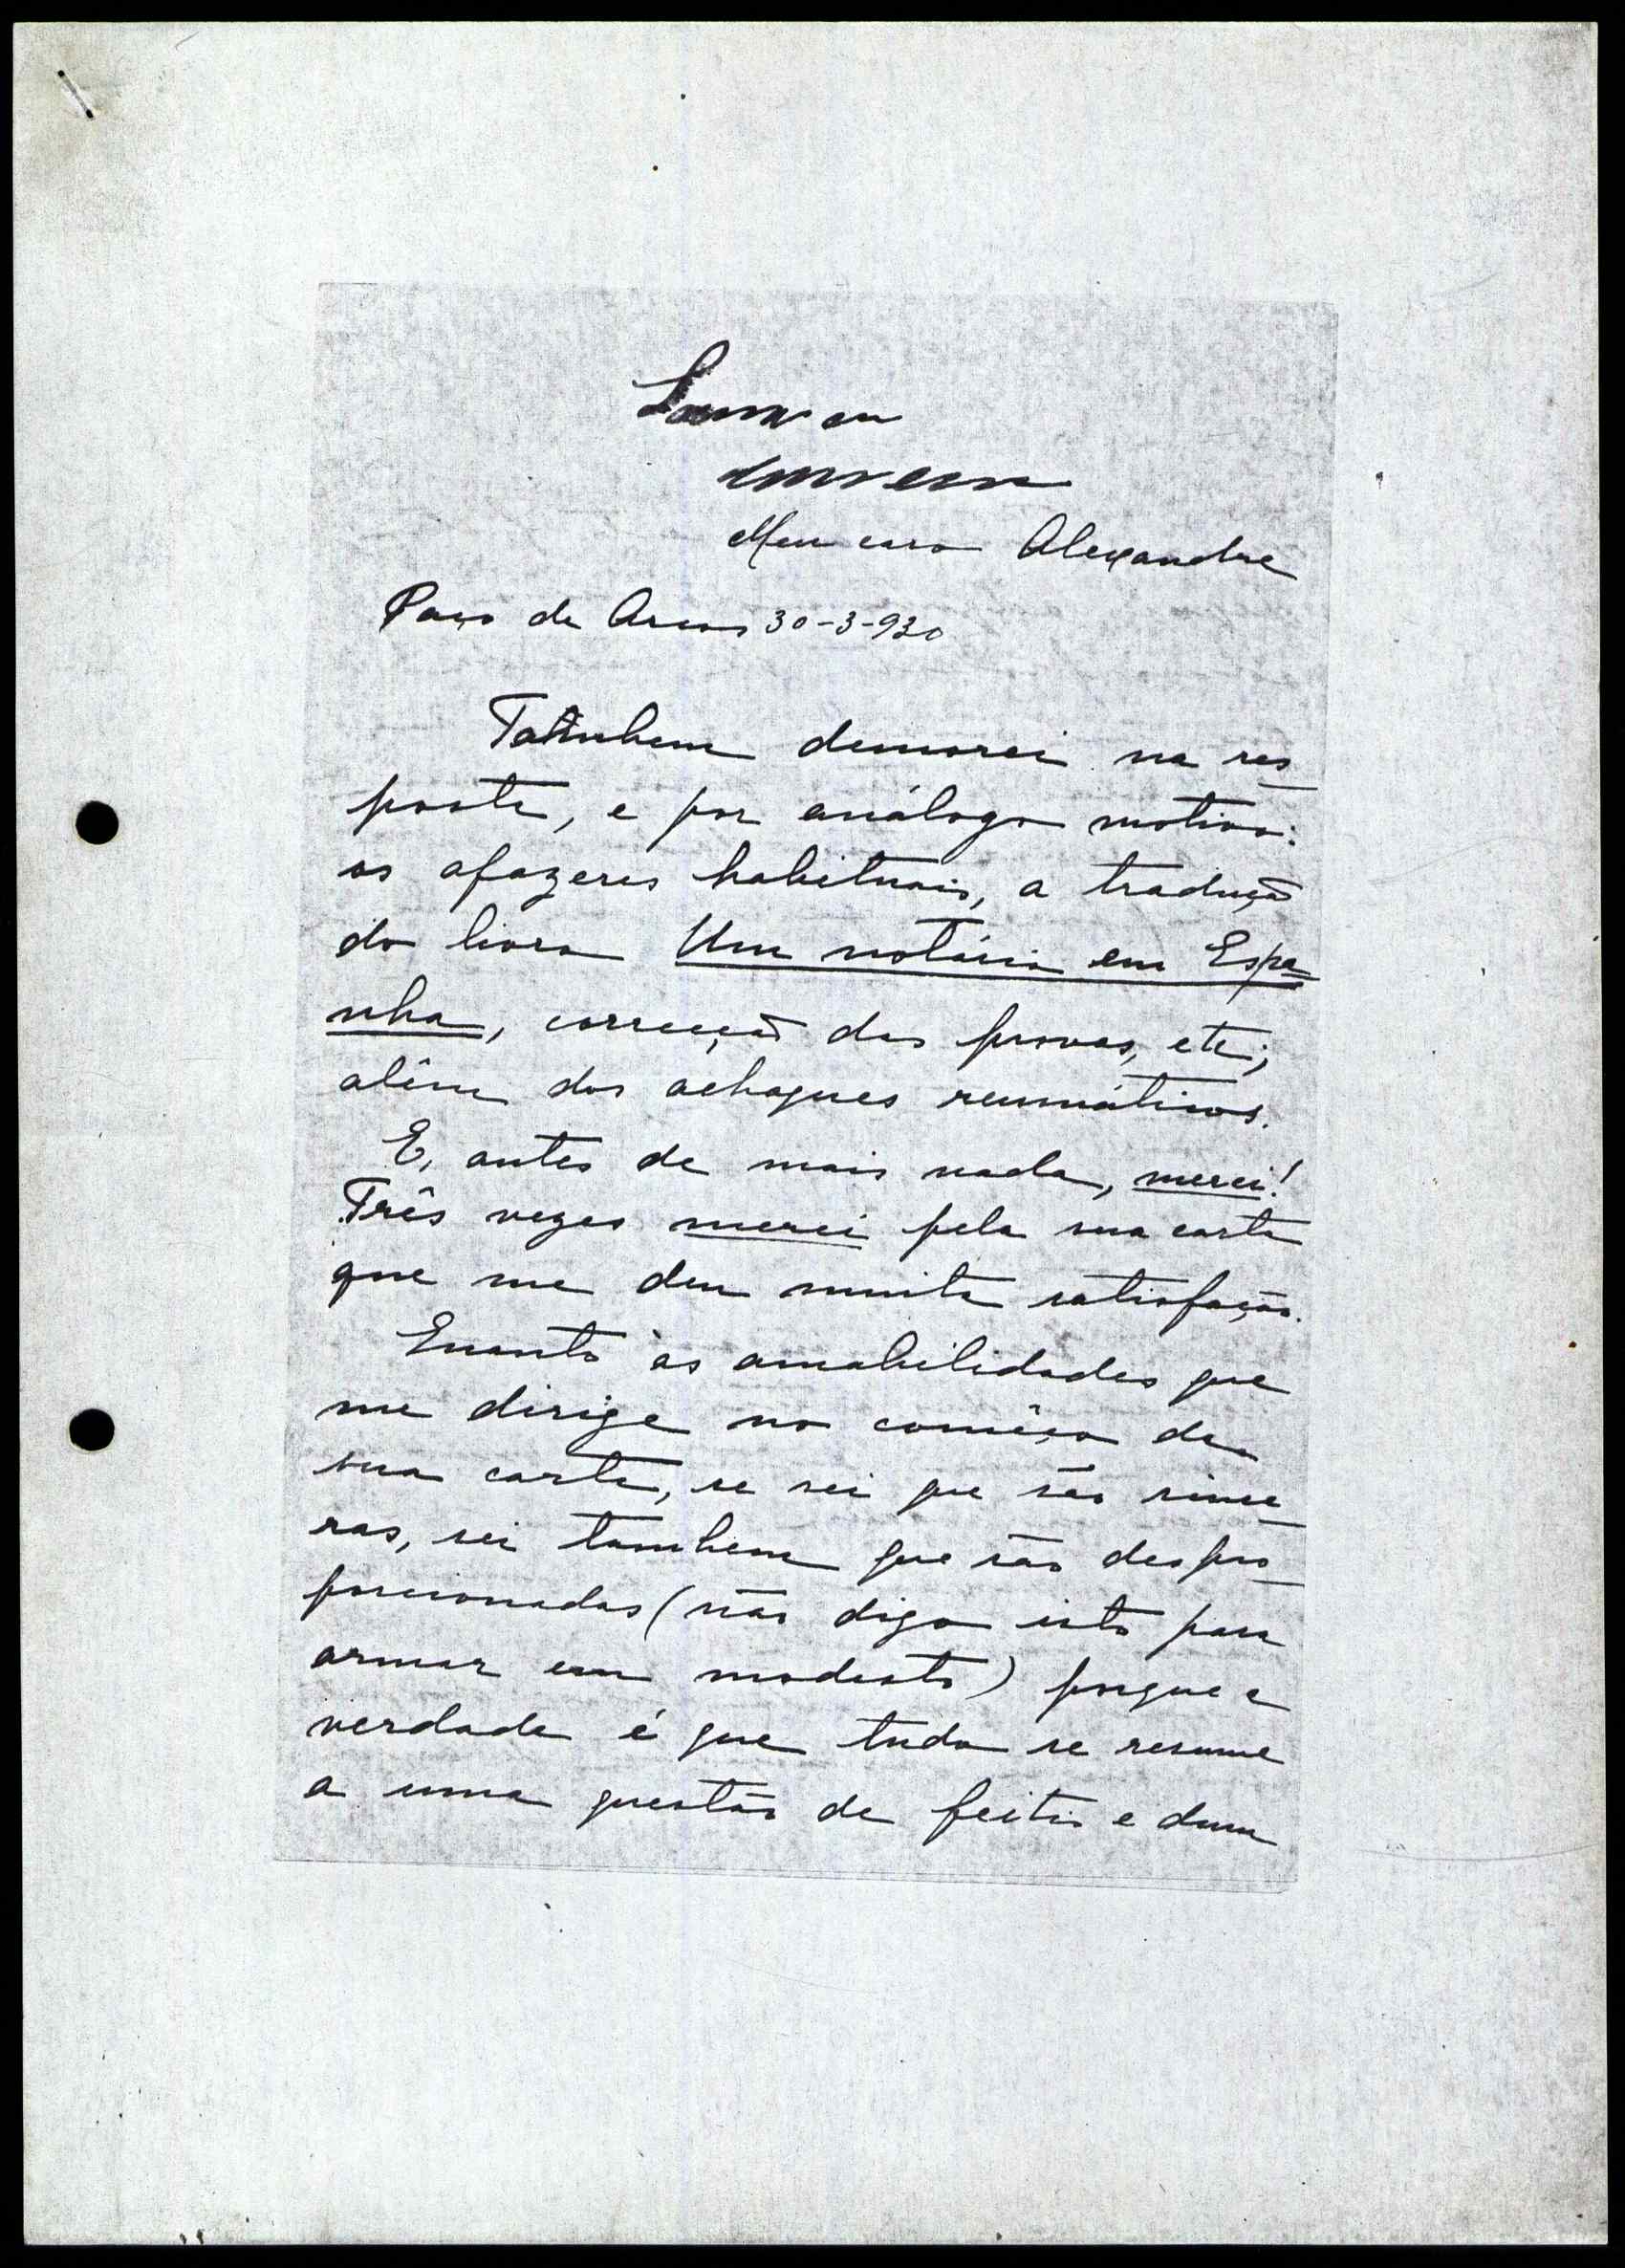 Meu caro Alexandre
Paço de Arcos 30-3-930
Tambem demorei na res-
posta, e por análogo motivo:
os afazeres habituais, a tradução
do livro Um notário em Espa-
nha, correcção das provas, etc;
além dos achaques reumáticos.
E, antes de mais nada, merci!
Três vezes merci pela sua carta
que me deu muita satisfação.
Quanto às amabilidades que
me dirige no comêço da
sua carta, se sei que são since-
ras, sei tambem que são despro-
porcionadas (não digo isto para
armar em modesto) porque a
verdade é que tudo se resume
a uma questão de feitio e duma